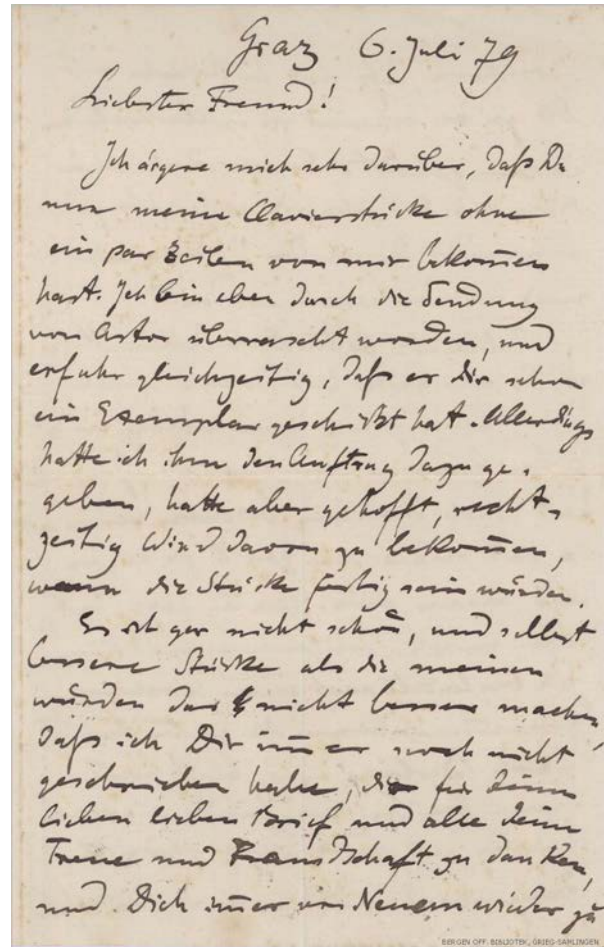 Graz 6. Juli 79
Liebster Freund!
Ich ärgere mich sehr darüber, daß Du
nun meine Clavierstücke ohne
ein par Zeilen von mir bekom̅en
hast. Ich bin eben durch die Sendung
von Astor überrascht worden, und
erfuhr gleichzeitig, daß er Dir schon
ein Exemplar geschickt hat. Allerdings
hatte ich ihm den Auftrag dazu ge-
geben, hatte aber gehofft, recht-
zeitig Wind davon zu bekom̅en,
wann die Stücke fertig sein würden.
Es ist gar nicht schön, und selbst
bessere Stücke als die meinen
würden das nicht besser machen,
daß ich Dir im̅er noch nicht
geschrieben habe, für Deinen
lieben lieben Brief und alle Deine
Treue und Freundschaft zu danken,
und Dich im̅er von Neuem wieder zu
BERGEN OFF. BIBLIOTEK, GRIEG-SAMLINGEN